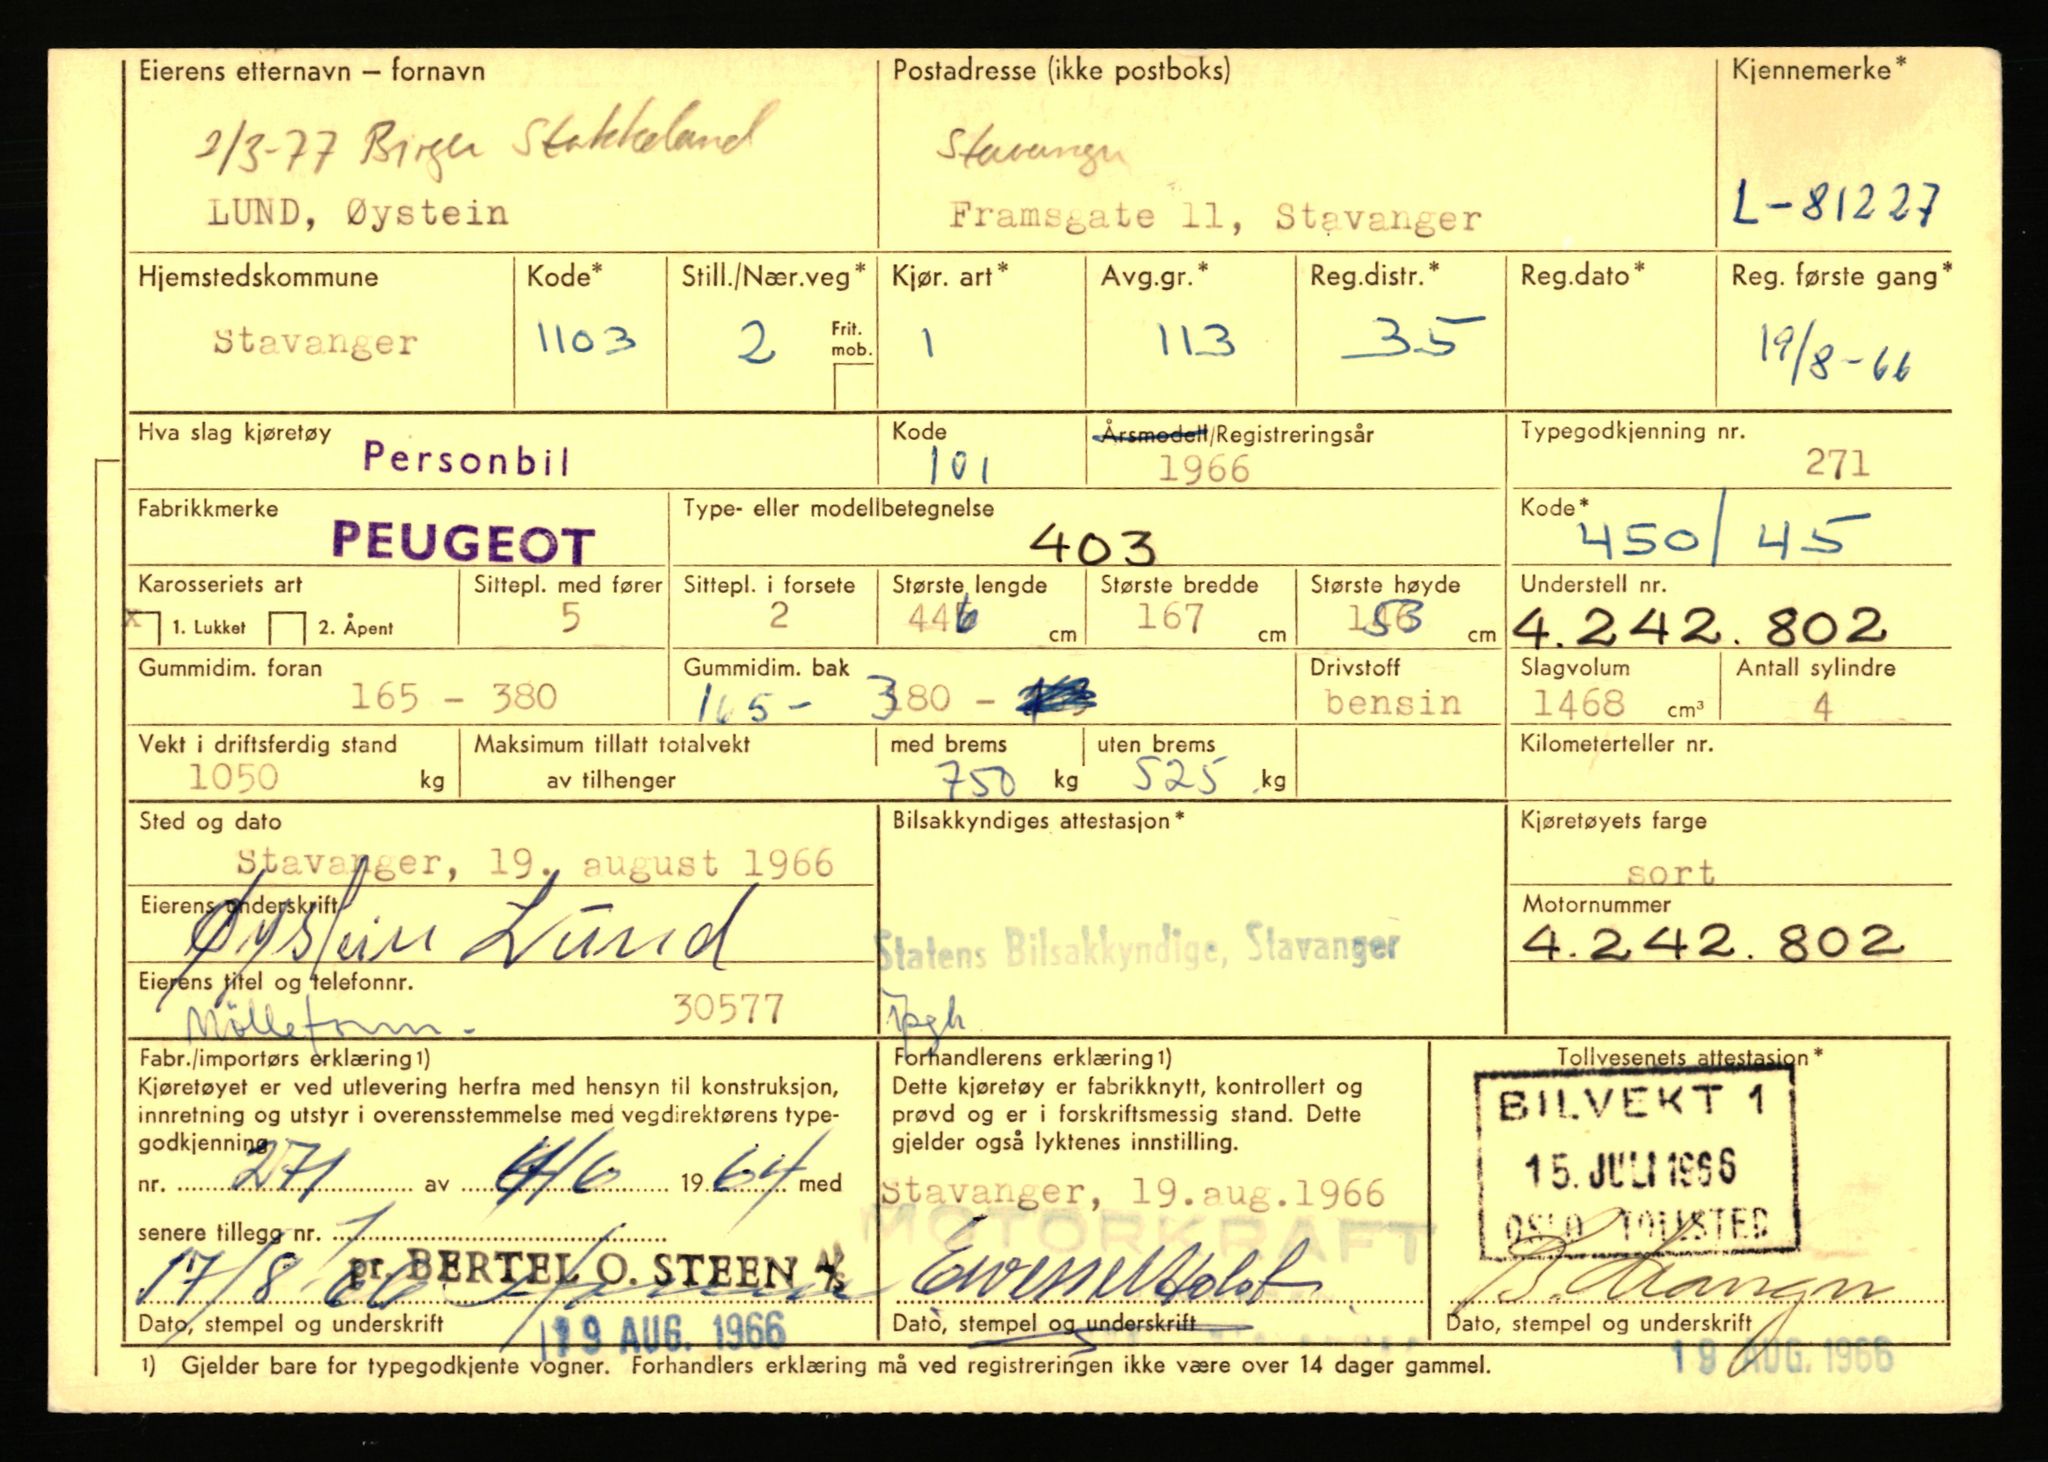 Eierens etternavn – fornavn
2/3-77 Birger Stokkeland
LUND, Øystein
Postadresse (ikke postboks)
Stavanger
Framsgate 11, Stavanger
Kjennemerke*
L-81227
Hjemstedskommune
Stavanger
Kode*
1103
Still./Nær.veg*
2
Frit.
mob.
Kjør. art*
1
Avg.gr.*
113
Reg.distr.*
35
Reg.dato*
Reg. første gang*
19/8-66
Hva slag kjøretøy
Personbil
Kode
101
Årsmodell/Registreringsår
1966
Typegodkjenning nr.
271
Fabrikkmerke
PEUGEOT
Type- eller modellbetegnelse
403
Kode*
450/45
Karosseriets art
x 1. Lukket 2. Åpent
Sittepl. med fører
5
Sittepl. i forsete
2
Største lengde
446 cm
Største bredde
167 cm
Største høyde
153 cm
Understell nr.
4.242.802
Gummidim. foran
165 - 380
Gummidim. bak
165 - 380 -
Drivstoff
bensin
Slagvolum
1468 cm³
Antall sylindre
4
Vekt i driftsferdig stand
1050 kg
Maksimum tillatt totalvekt
av tilhenger
med brems
750 kg
uten brems
525 kg
Kilometerteller nr.
Sted og dato
Stavanger, 19. august 1966
Bilsakkyndiges attestasjon*
Statens Bilsakkyndige, Stavanger
Kjøretøyets farge
sort
Eierens underskrift
Øystein Lund
Motornummer
4.242.802
Eierens titel og telefonnr.
30577
Fabr./importørs erklæring¹)
Kjøretøyet er ved utlevering herfra med hensyn til konstruksjon,
innretning og utstyr i overensstemmelse med vegdirektørens type-
godkjenning
nr. 271 av 4/6 1964 med
senere tillegg nr. 1
17/8 66 pr. BERTEL O. STEEN A/S
Dato, stempel og underskrift
19 AUG. 1966
Forhandlerens erklæring¹)
Dette kjøretøy er fabrikknytt, kontrollert og
prøvd og er i forskriftsmessig stand. Dette
gjelder også lyktenes innstilling.
Stavanger, 19.aug.1966
MOTORKRAFT
Dato, stempel og underskrift
Tollvesenets attestasjon*
BILVEKT 1
15. JULI 1966
OSLO TOLLSTED
Dato, stempel og underskrift
19 AUG. 1966
¹) Gjelder bare for typegodkjente vogner. Forhandlers erklæring må ved registreringen ikke være over 14 dager gammel.